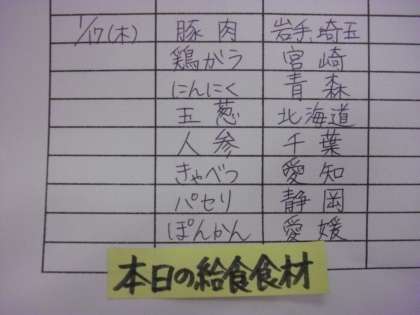 1/17(木) 豚肉 岩手,埼玉
鶏がら 宮崎
にんにく 青森
玉葱 北海道
人参 千葉
きゃべつ 愛知
パセリ 静岡
ぽんかん 愛媛
本日の給食食材